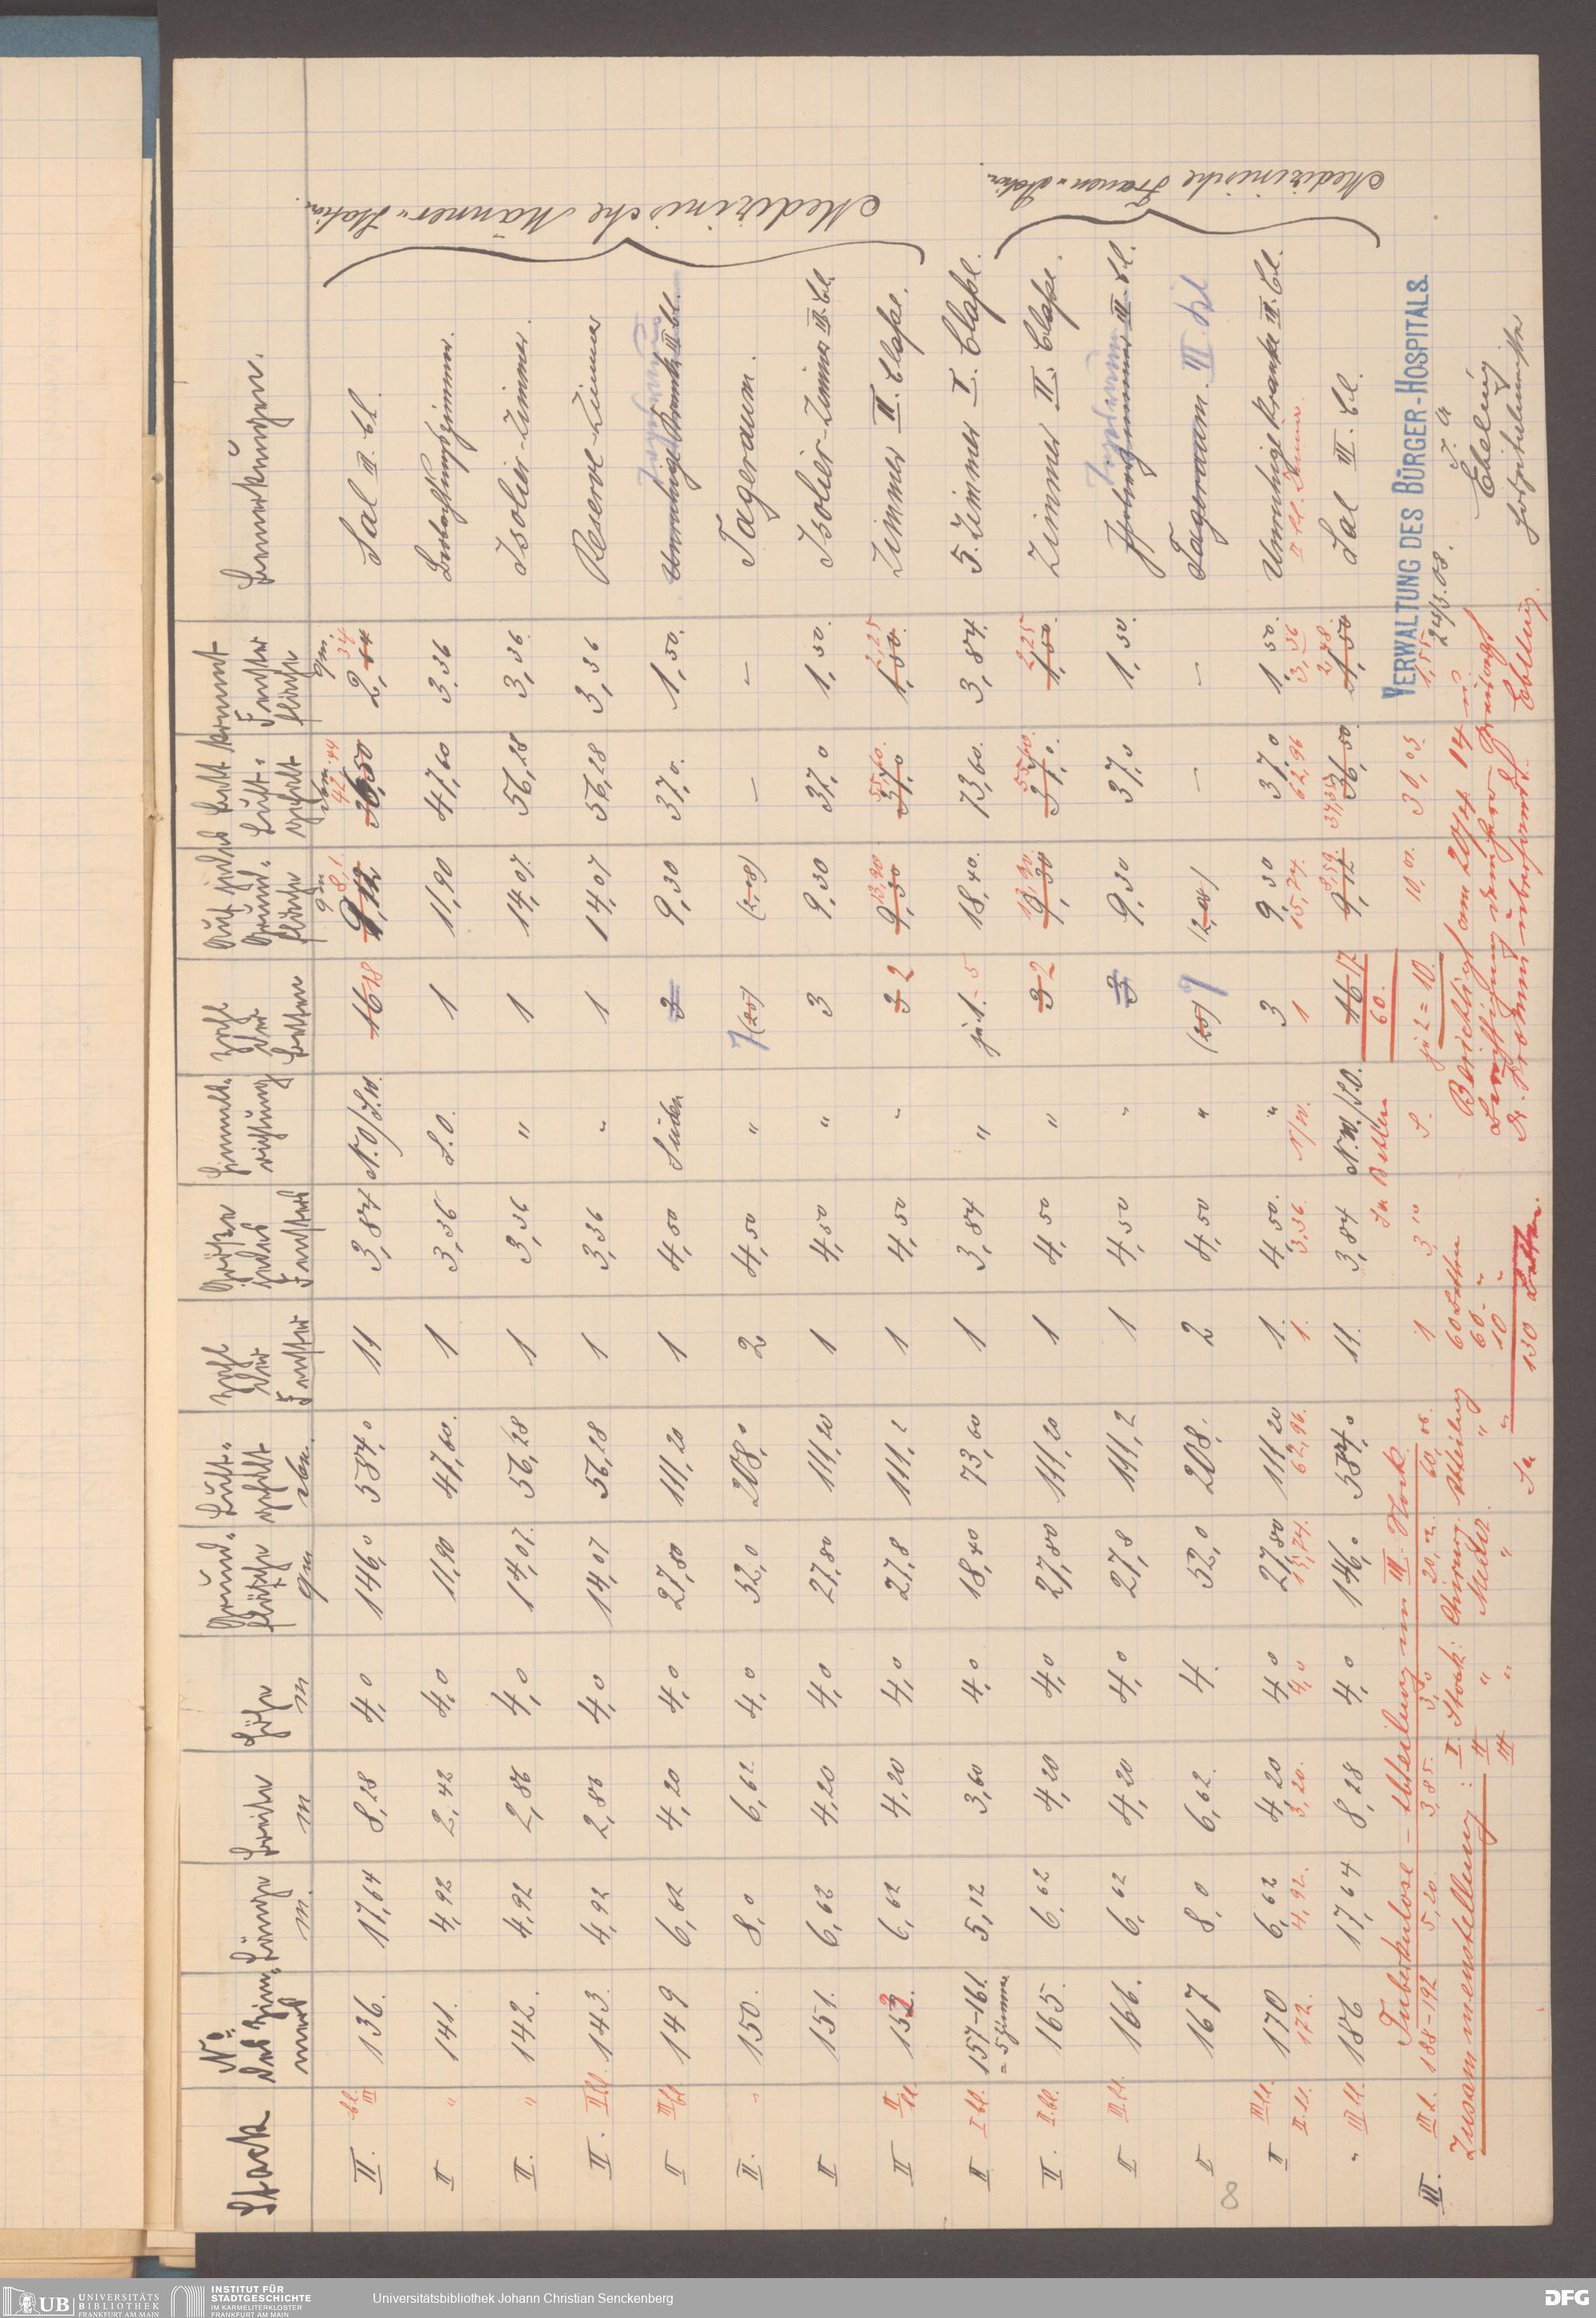 Stock | No. des Zimmers | Länge m. | Breite m | Höhe m | Grundfläche qm | Luftgehalt cbm. | Zahl der Fenster | Größe jedes Fensters | Himmelsrichtung | Zahl der Betten | Auf jedes Bett kommt Grundfläche qm | Luftgehalt cbm | Fensterfläche qm. | Bemerkungen.
II. Cl. III | 136. | 17,64 | 8,28 | 4,0 | 146,0 | 584,0 | 11 | 3,84 | N.O/S.W. | 16 18 | 9,12 8,1 | 36,50 42,44 | 2,64 34 | Sal III. Cl.
II " | 141. | 4,92 | 2,42 | 4,0 | 11,90 | 47,60. | 1 | 3,36 | S.O. | 1 | 11,90 | 47,60 | 3,36 | Beobachtungszimmer.
II. " | 142. | 4,92 | 2,86 | 4,0 | 14,07. | 56,28 | 1 | 3,36 | " | 1 | 14,07. | 56,28 | 3,36. | Isolier-Zimmer.
II. II Cl. | 143. | 4,92 | 2,86 | 4,0 | 14,07 | 56,28 | 1 | 3,36 | " | 1 | 14,07 | 56,28 | 3,36 | Reserve-Zimmer
II III Cl. | 149 | 6,62 | 4,20 | 4,0 | 27,80 | 111,20 | 1 | 4,50 | Süden | 3 | 9,30 | 37,0. | 1,50. | Unruhige Kranke III Cl.
II. " | 150. | 8,0 | 6,62. | 4,0 | 52,0 | 208,0 | 2 | 4,50 | " | 7 (25) | (2,08) | — | — | Tageraum.
II | 151. | 6,62 | 4,20 | 4,0 | 27,80 | 111,20 | 1 | 4,50 | " | 3 | 9,30 | 37,0 | 1,50. | Isolier-Zimmer III. Cl.
II II Cl. | 152. | 6,62 | 4,20 | 4,0 | 27,8 | 111,2 | 1 | 4,50 | " | 3 2 | 9,30 13,90 | 37,0 55,60. | 1,50. 2,25 | Zimmer II. Classe.
II I Cl. | 157-161. = 5 Zimmer | 5,12 | 3,60 | 4,0 | 18,40 | 73,60 | 1 | 3,84 | " | je 1. - 5 | 18,40. | 73,60. | 3,84. | 5. Zimmer I. Classe.
II. II. Cl. | 165. | 6,62 | 4,20 | 4,0 | 27,80 | 111,20 | 1 | 4,50 | " | 3 2 | 9,30 13,90. | 37,0. 55,60. | 1,50. 2,25 | Zimmer II. Classe.
II III. Cl. | 166. | 6,62 | 4,20 | 4,0 | 27,8 | 111,2 | 1 | 4,50 | " | 3 | 9,30 | 37,0 | 1,50. | III. Cl.
II | 167 | 8,0 | 6,62. | 4. | 52,0 | 208. | 2 | 4,50 | " | (25) 9 | (2,08) | — | — | Tageraum. III. Cl
II III Cl. | 170 | 6,62 | 4,20 | 4,0 | 27,80 | 111,20 | 1. | 4,50. | " | 3 | 9,30 | 37,0 | 1,50. | Unruhige Kranke III. Cl.
II. Cl. | 172. | 4,92. | 3,20. | 4,0 | 15,74. | 62,96. | 1. | 3,36. | N/W. | 1 | 15,74. | 62,96 | 3,36 | II Cl. Zimmer.
" III Cl. | 186 | 17,64 | 8,28 | 4,0 | 146,0 | 584,0 | 11. | 3,84 | N.W./S.O. | 16 17 | 9,12 8,59. | 36,50. 34,35 | 1,50 2,48 | Sal III. Cl.
Medizinische Männer-Station.
Medizinische Frauen-Station.
Sa Betten 60.
Tuberkulose-Abteilung im III. Stock
III. III Cl. | 188-192 | 5,20. | 3,85. | 3,0 | 20,02. | 60,06. | 1 | 3,10 | S. | je 2 = 10. | 10,01. | 30,03. | 1,55
Zusammenstellung: I. Stock: Chirurg. Abteilung 60 Betten
II " Mediz. " 60. "
III " " " 10 "
Sa 130 Betten.
Berichtigt am 20/4 14 u.
VERWALTUNG DES BÜRGER-HOSPITALS.
24/3.08.
Ebeling
Hospitalmeister
Ebeling.
8